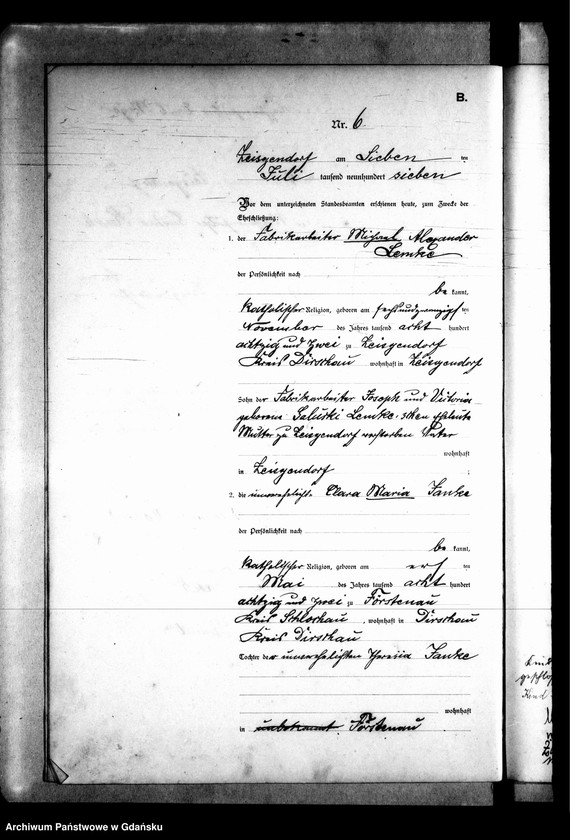 B.
Nr. 6
Zeisgendorf am Sieben ten
Juli tausend neunhundert sieben
Vor dem unterzeichneten Standesbeamten erschienen heute, zum Zwecke der
Eheschließung:
1. der Fabrikarbeiter Michael Alexander
Lemke
der Persönlichkeit nach
be kannt,
katholischer Religion, geboren am sechsundzwanzigs ten
November des Jahres tausend acht hundert
achtzig und zwei zu Zeisgendorf
Kreis Dirschau wohnhaft in Zeisgendorf
Sohn der Fabrikarbeiter Joseph und Viktoria
geborene Saluski Lemke'schen Eheleute
Mutter zu Zeisgendorf verstorben Vater
wohnhaft
in Zeisgendorf ;
2. die unverehelicht. Clara Maria Janke
der Persönlichkeit nach
be kannt,
katholischer Religion, geboren am ers ten
Mai des Jahres tausend acht hundert
achtzig und zwei zu Förstenau
Kreis Schlochau, wohnhaft in Dirschau
Kreis Dirschau
Tochter der unverehelichten Theresia Janke
wohnhaft
in unbekannt Förstenau
Archiwum Państwowe w Gdańsku